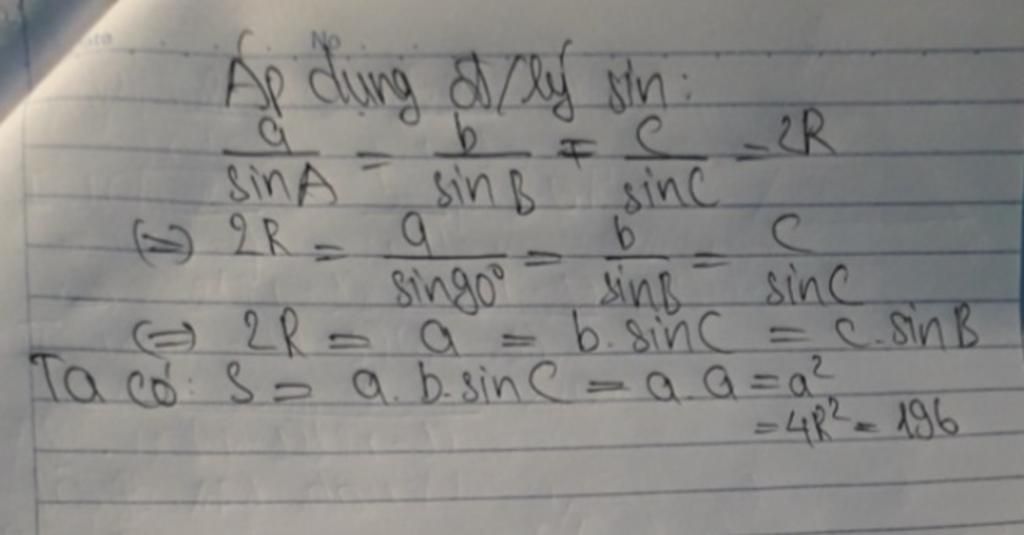 No
Áp dụng đ/lý sin:
a/sinA = b/sinB = c/sinC = 2R
(=>) 2R = a/sin90° = b/sinB = c/sinC
(=) 2R = a = b.sinC = c.sinB
Ta có: S = a.b.sinC = a.a = a²
= 4R² = 196